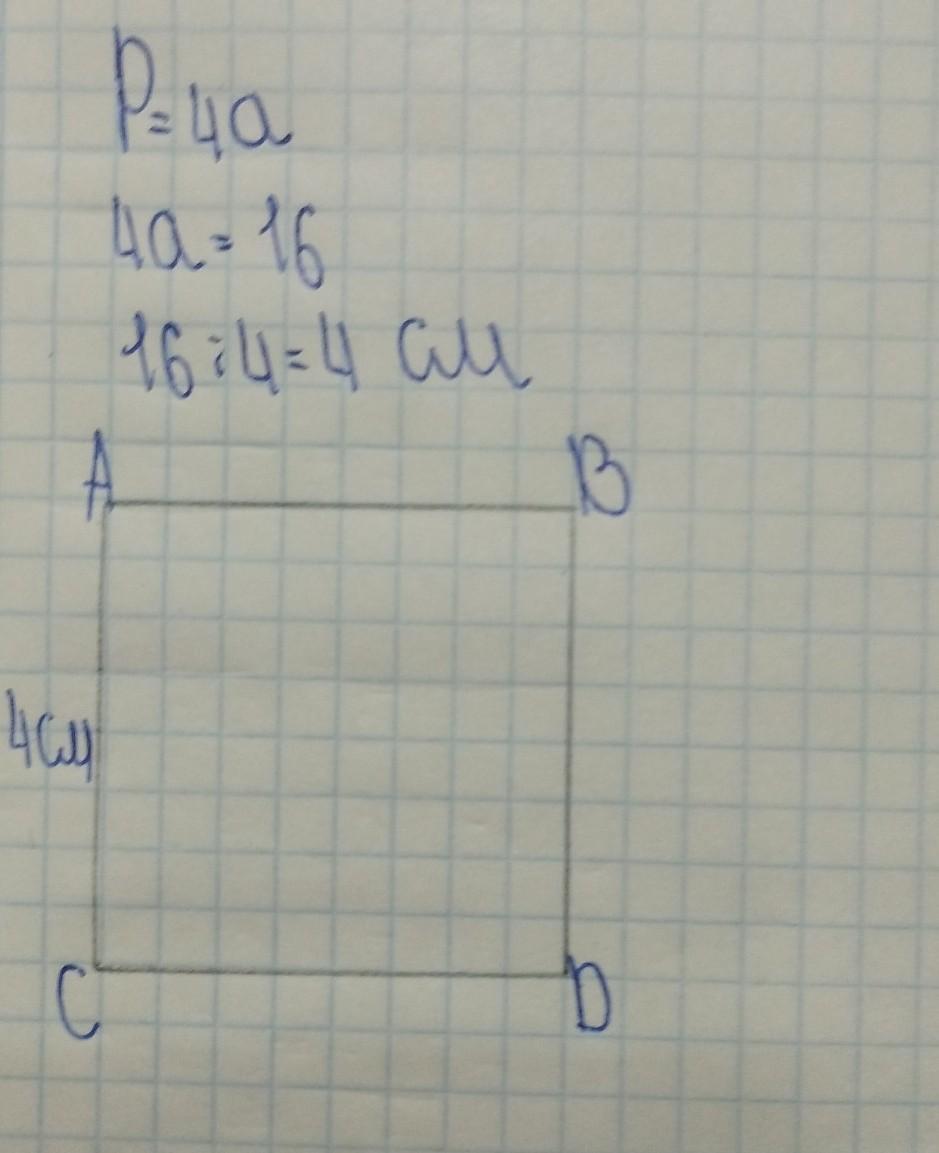 P=4a
4a=16
16:4=4 см
A B
4см
C D